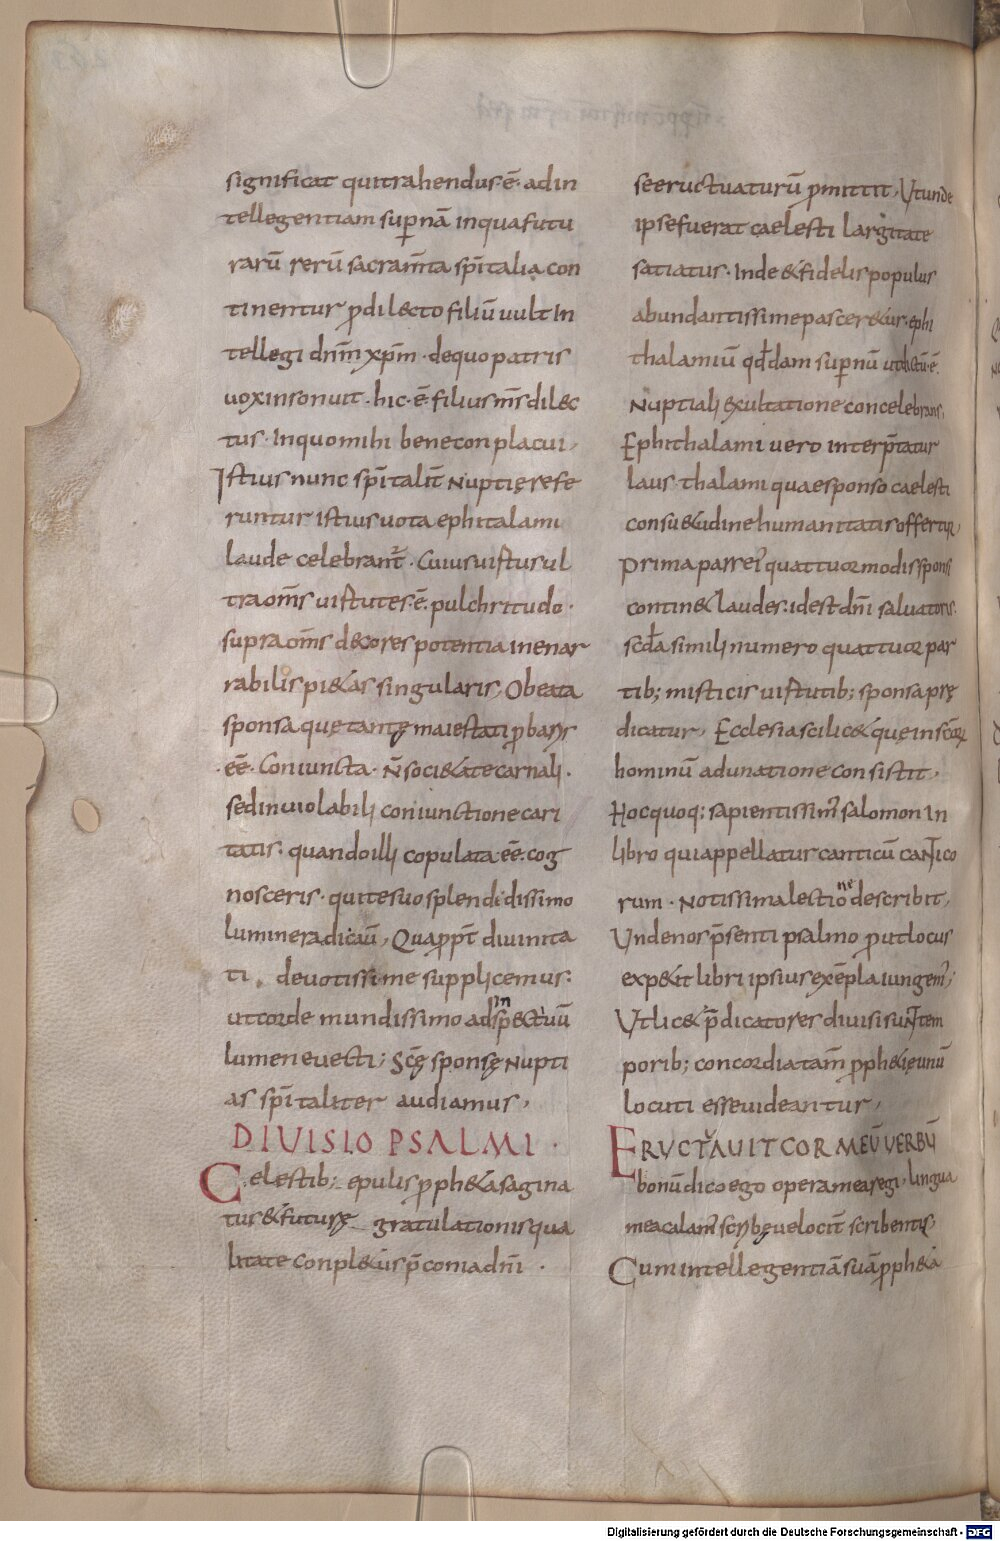 significat qui trahendus·ē· ad in
tellegentiam sup̄nā in qua futu
rarū rerū sacram̄ta sp̄italia con
tinentur p̄ dilecto filiū uult In
tellegi dnm̄ xp̄m · de quo patris
uox insonuit · hic·ē· filius m̄s dilec
tus · In quo mihi bene conplacui,
Istius nunc sp̄italit̄ Nuptię refe
runtur istius uota ephitalami
laude celebrant̄ · Cuius uirtus ul
tra om̄s uirtutes·ē· pulchritudo ·
supra om̄s decores potentia inenar
rabilis pi&as singularis, O beata
sponsa que tantę maiestati p̄bar̄
·eē· Coniuncta · N̄ soci&ate carnali ·
sed inuiolabili coniunctione cari
tatis: quando illi copulata·eē· cog
nosceris · qui te suo splendidissimo
lumine radicaū, Quapp̄t diuinita
ti , deuotissime supplicemus:
ut corde mundissimo ad insp̄ectiuū
lumen euecti; Sc̄ę sponsę Nupti
as sp̄italiter audiamus,
DIVISIO PSALMI ·
Celestib; epulis p̄ph&a sagina
tus & futurę gratulationis qua
litate conpl&us p̄conia dn̄i ·
se eructuaturū p̄mittit, Ut unde
ipse fuerat caelesti largitate
satiatus · Inde & fidelis populus
abundantissime pascer&ur · ephi
thalamiū qd̄dam sup̄nū ut dictū·ē·
Nuptiali exultatione concelebrans,
Ephithalami uero interp̄tatur
laus thalami quae sponso caelesti
consu&udine humanitatis offertur,
Prima pars ei quattuor modis sponsi
contin& laudes · id est dn̄i saluatoris.
scd̄a simili numero quattuor par
tib; misticis uirtutib; sponsa prę
dicatur, Ecclesia scilic& quę in sc̄orum
hominū adunatione consistit,
Hoc quoq; sapientissim' salomon In
libro qui appellatur canticū cantico
rum · Notissima lectione describit,
Unde nos p̄senti psalmo p̄ut locus
exp&it libri ipsius exēpla iungem';
Ut lic& p̄dicatores diuisi sunt tem
porib; concordia tam̄ p̄ph&ię unū
locuti esse uideantur,
ERUCTAUIT COR MEŪ VERBŪ
bonū dico ego opera mea regi, lingua
mea calam' scribę uelocit̄ scribentis,
Cum intellegentiā suā p̄ph&a
Digitalisierung gefördert durch die Deutsche Forschungsgemeinschaft - DFG